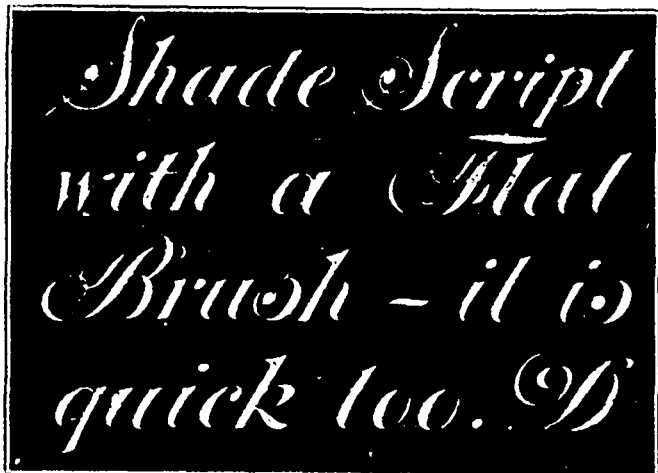 Shade Script
with a Flat
Brush - it is
quick too. D